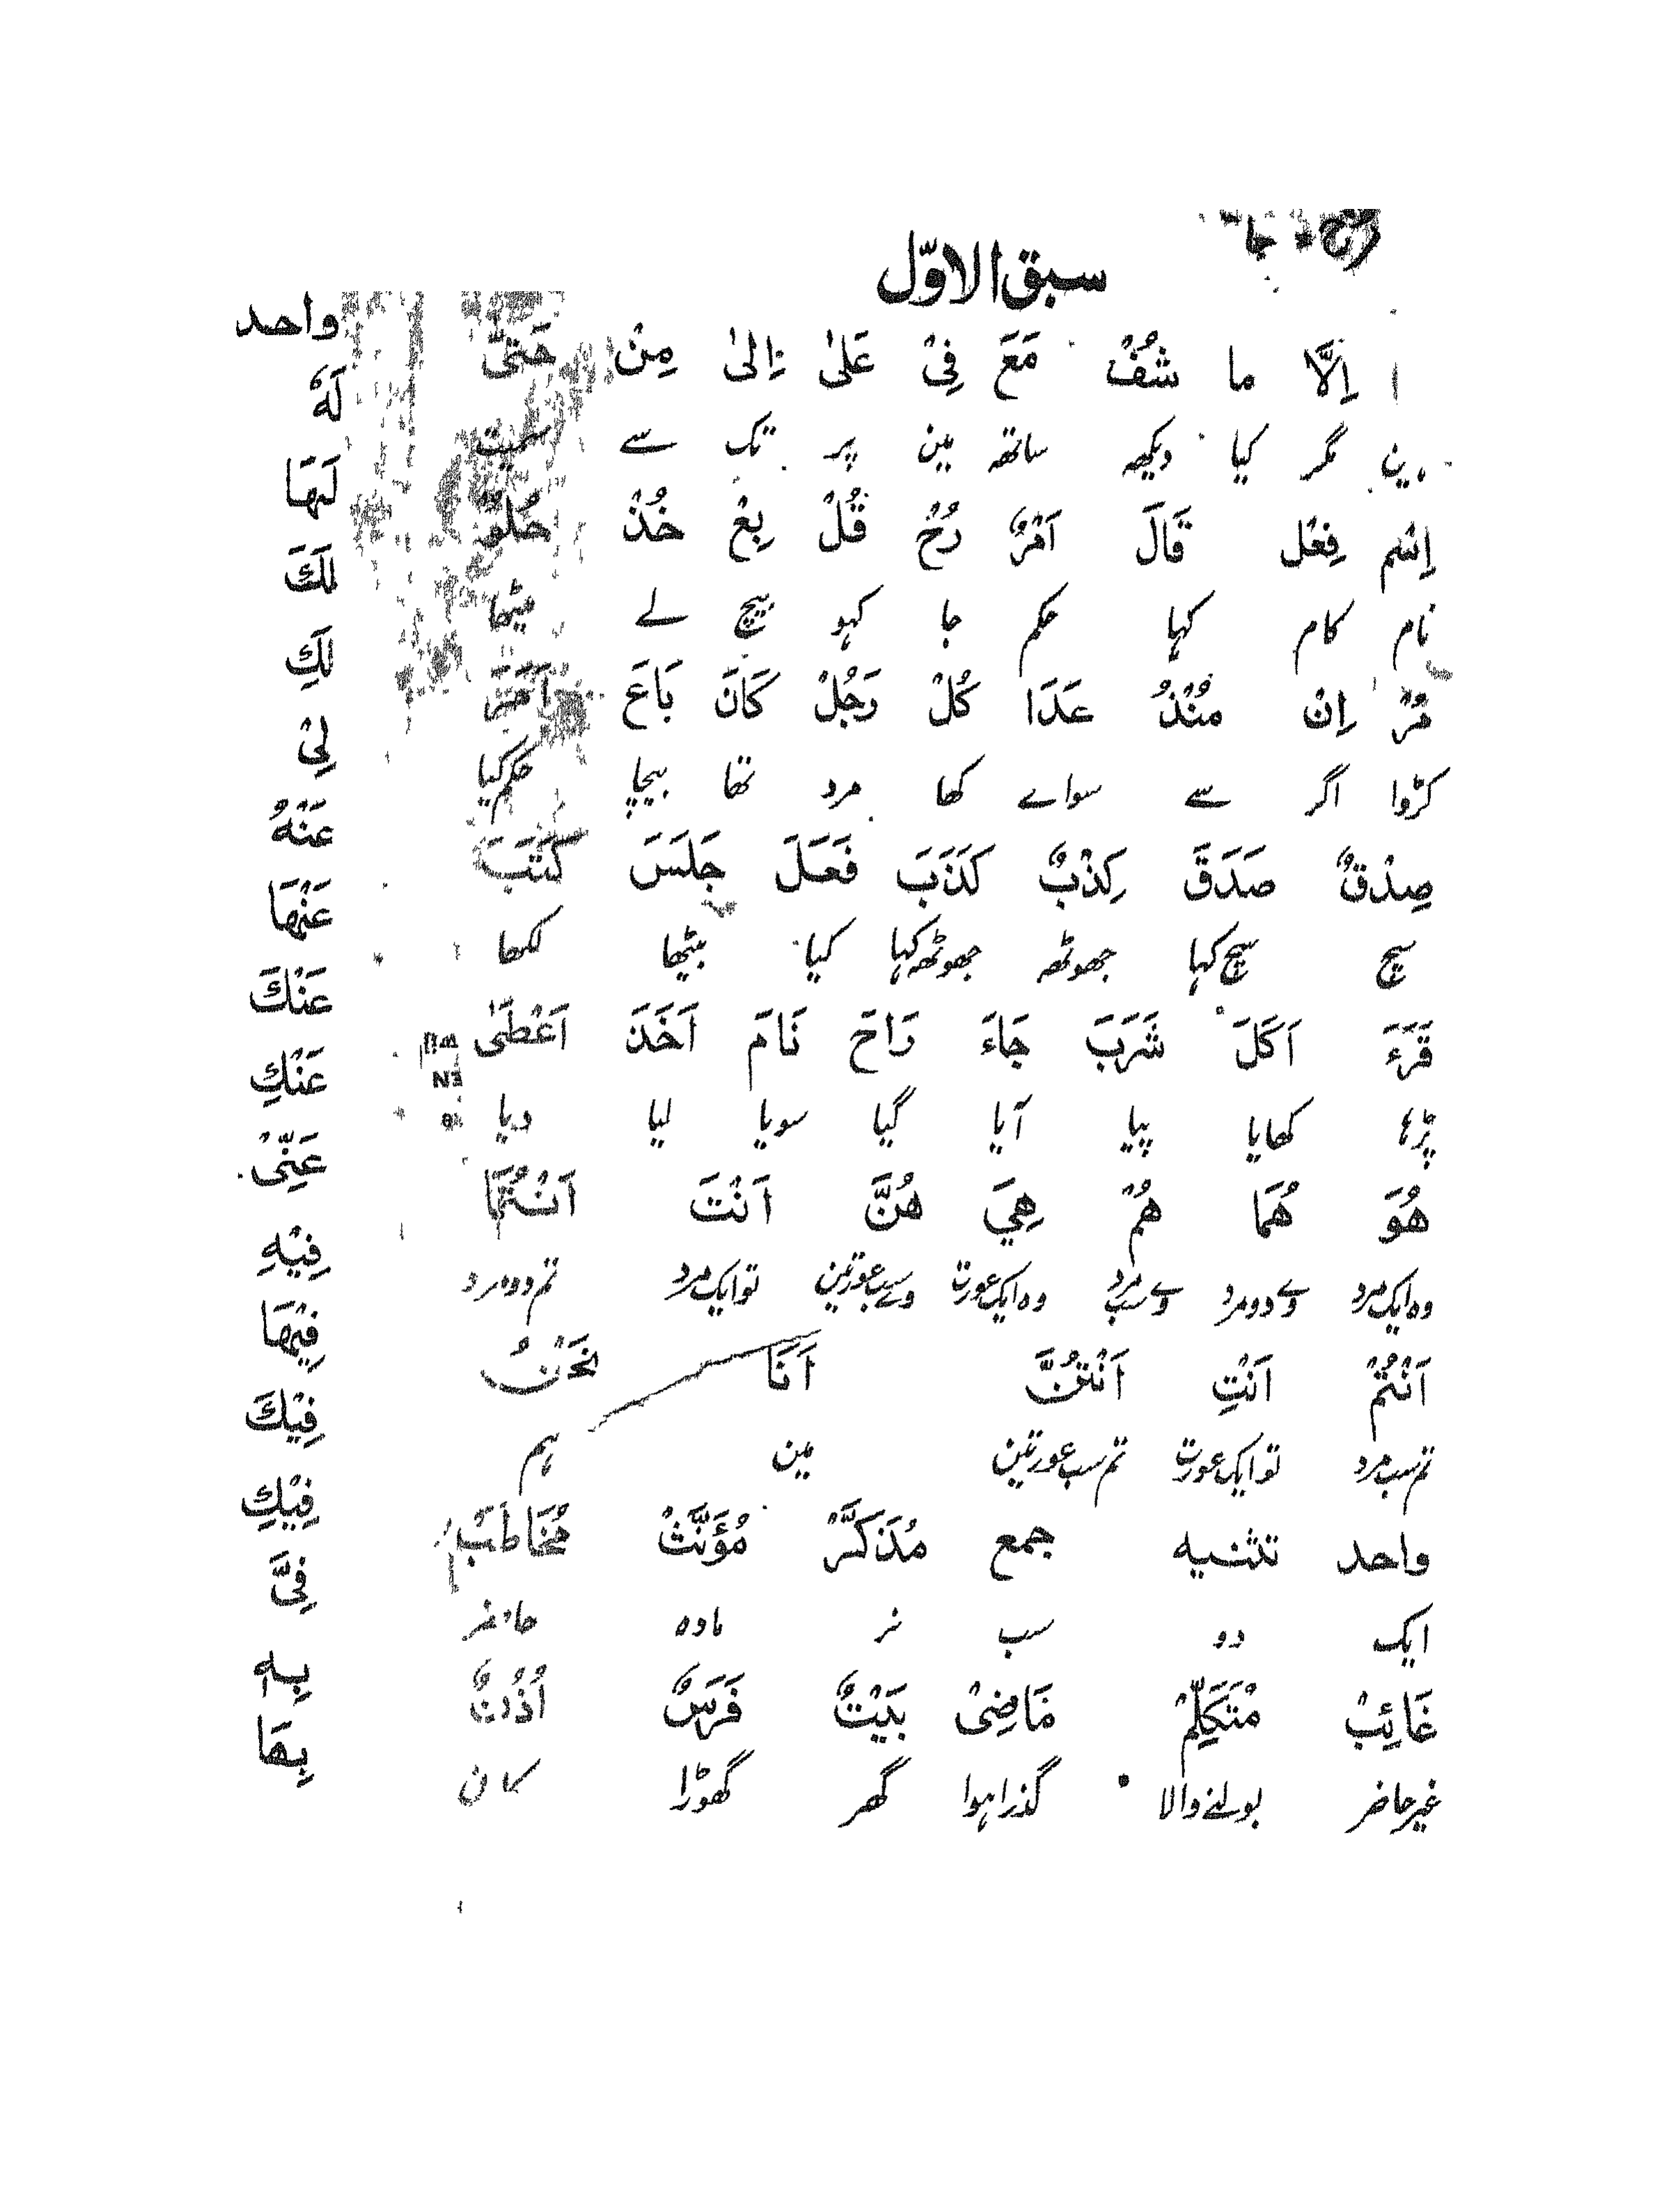 سبق الاوّل
اِلَّا ما شُفْ مَعَ فِیْ عَلیٰ اِلیٰ مِنْ حَتّیٰ
مگر کیا دیکھ ساتھ مین پر تک سے
اِسْم فِعْل قَالَ اَمْرٌ رُحْ قُلْ بِعْ خُذْ حُلْوٌ
نام کام کہا حکم جا کہو بیچ لے میٹھا
مُرّ اِنْ مُنْذُ عَدَا کُلْ رَجُلْ کَانَ بَاعَ اَمَرَ
کڑوا اگر سے سواے کھا مرد تھا بیچا حکم کیا
صِدْقٌ صَدَقَ کِذْبٌ کَذَبَ فَعَلَ جَلَسَ کَتَبَ
سچ سچ کہا جھوٹھ جھوٹھ کہا کیا بیٹھا لکھا
قَرَءَ اَکَلَ شَرَبَ جَاءَ رَاحَ نَامَ اَخَذَ اَعْطَیٰ
پڑہا کھایا پیا آیا گیا سویا لیا دیا
هُوَ هُمَا هُمْ هِيَ هُنَّ اَنْتَ اَنْتُمَا
وہ ایک مرد وے دو مرد وے سب مرد وہ ایک عورت وے سب عورتین تو ایک مرد تم دو مرد
اَنْتُمْ اَنْتِ اَنْتُنَّ اَنَا نَحْنُ
تم سب مرد تو ایک عورت تم سب عورتین مین ہم
واحد تثنیه جمع مُذَکَّرْ مُؤَنَّثْ مُخَاطَبْ
ایک دو سب نر مادہ حاضر
غَائِبْ مُتَکَلِّمْ مَاضِیْ بَیْتٌ فَرَسٌ اُذُنٌ
غیر حاضر بولنے والا گذرا ہوا گھر گھوڑا کان
واحد
لَهٗ
لَهَا
لَكَ
لَكِ
لِیْ
عَنْهُ
عَنْهَا
عَنْكَ
عَنْكِ
عَنِّیْ
فِیْهِ
فِیْهَا
فِیْكَ
فِیْكِ
فِیَّ
بِهٖ
بِهَا